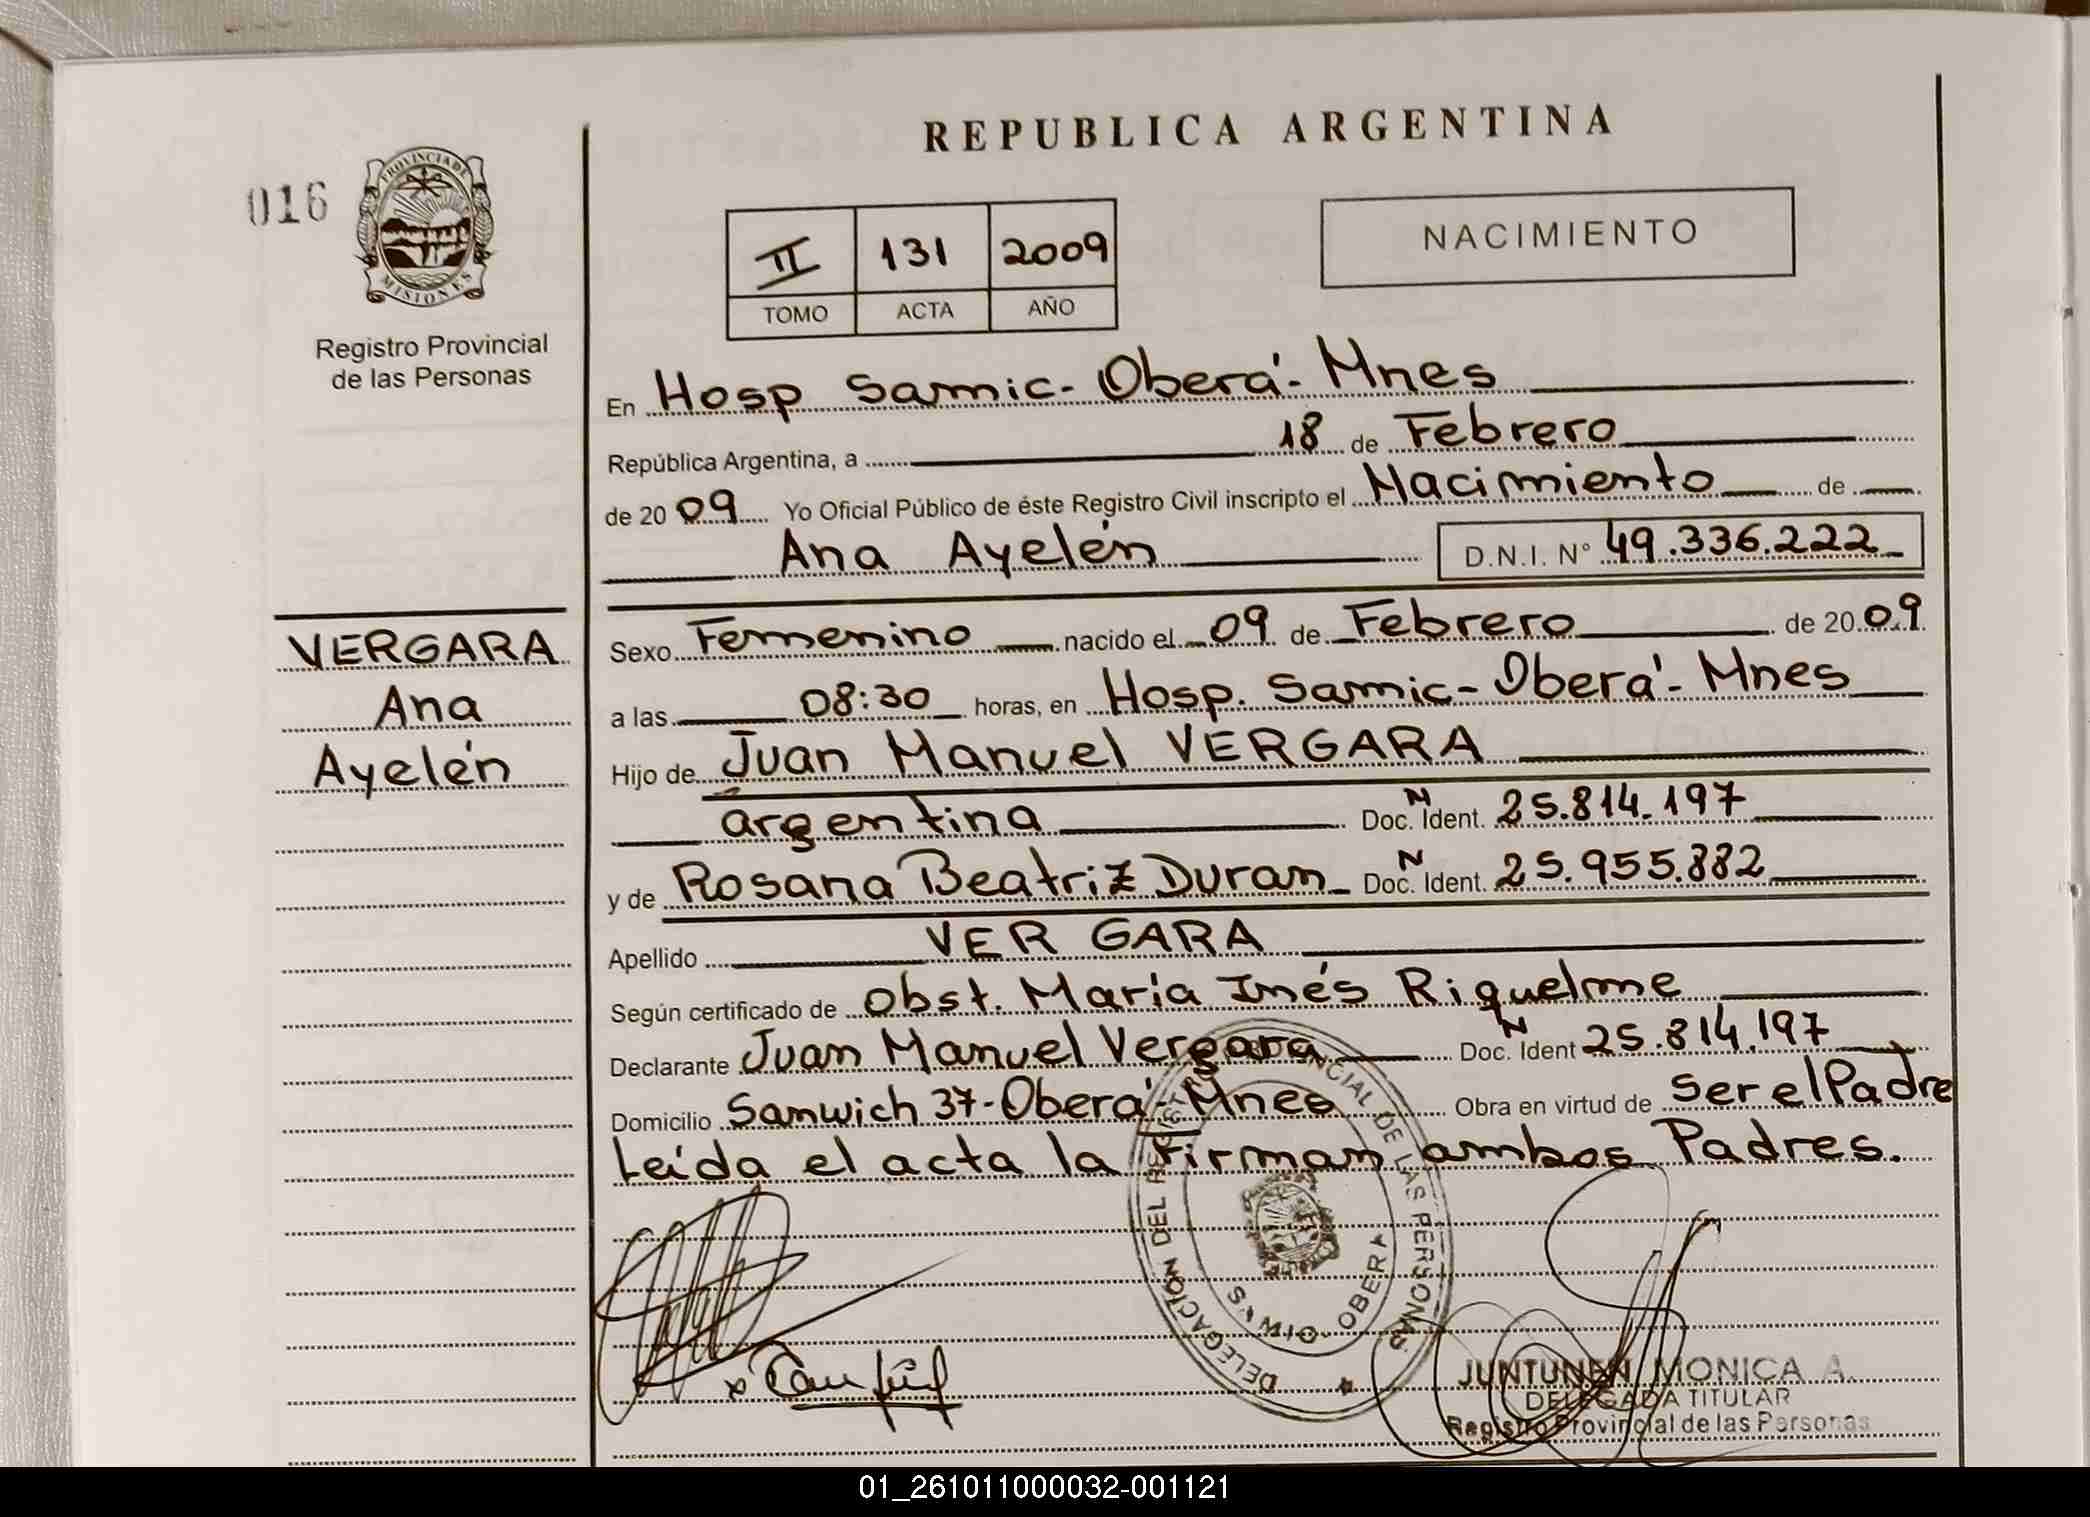 REPUBLICA ARGENTINA
016
PROVINCIA DE
MISIONES
Registro Provincial
de las Personas
II 131 2009
TOMO ACTA AÑO
NACIMIENTO
En Hosp Samic- Oberá- Mnes
República Argentina, a 18 de Febrero
de 2009 Yo Oficial Público de éste Registro Civil inscripto el Nacimiento de
Ana Ayelén D.N.I. N° 49.336.222
VERGARA
Ana
Ayelén
Sexo Femenino nacido el 09 de Febrero de 2009
a las 08:30 horas, en Hosp. Samic- Oberá- Mnes
Hijo de Juan Manuel VERGARA
argentina Doc. N Ident. 25.814.197
y de Rosana Beatriz Duran Doc. N Ident. 25.955.882
Apellido VERGARA
Según certificado de Obst. María Inés Riquelme
Declarante Juan Manuel Vergara Doc. N Ident 25.814.197
Domicilio Samwich 37-Oberá-Mnes Obra en virtud de Ser el Padre
Leída el acta la Firman ambos Padres.
DELEGACION DEL REGISTRO PROVINCIAL DE LAS PERSONAS
OBERA
JUNTUNEN MONICA A.
DELEGADA TITULAR
Registro Provincial de las Personas
01_261011000032-001121